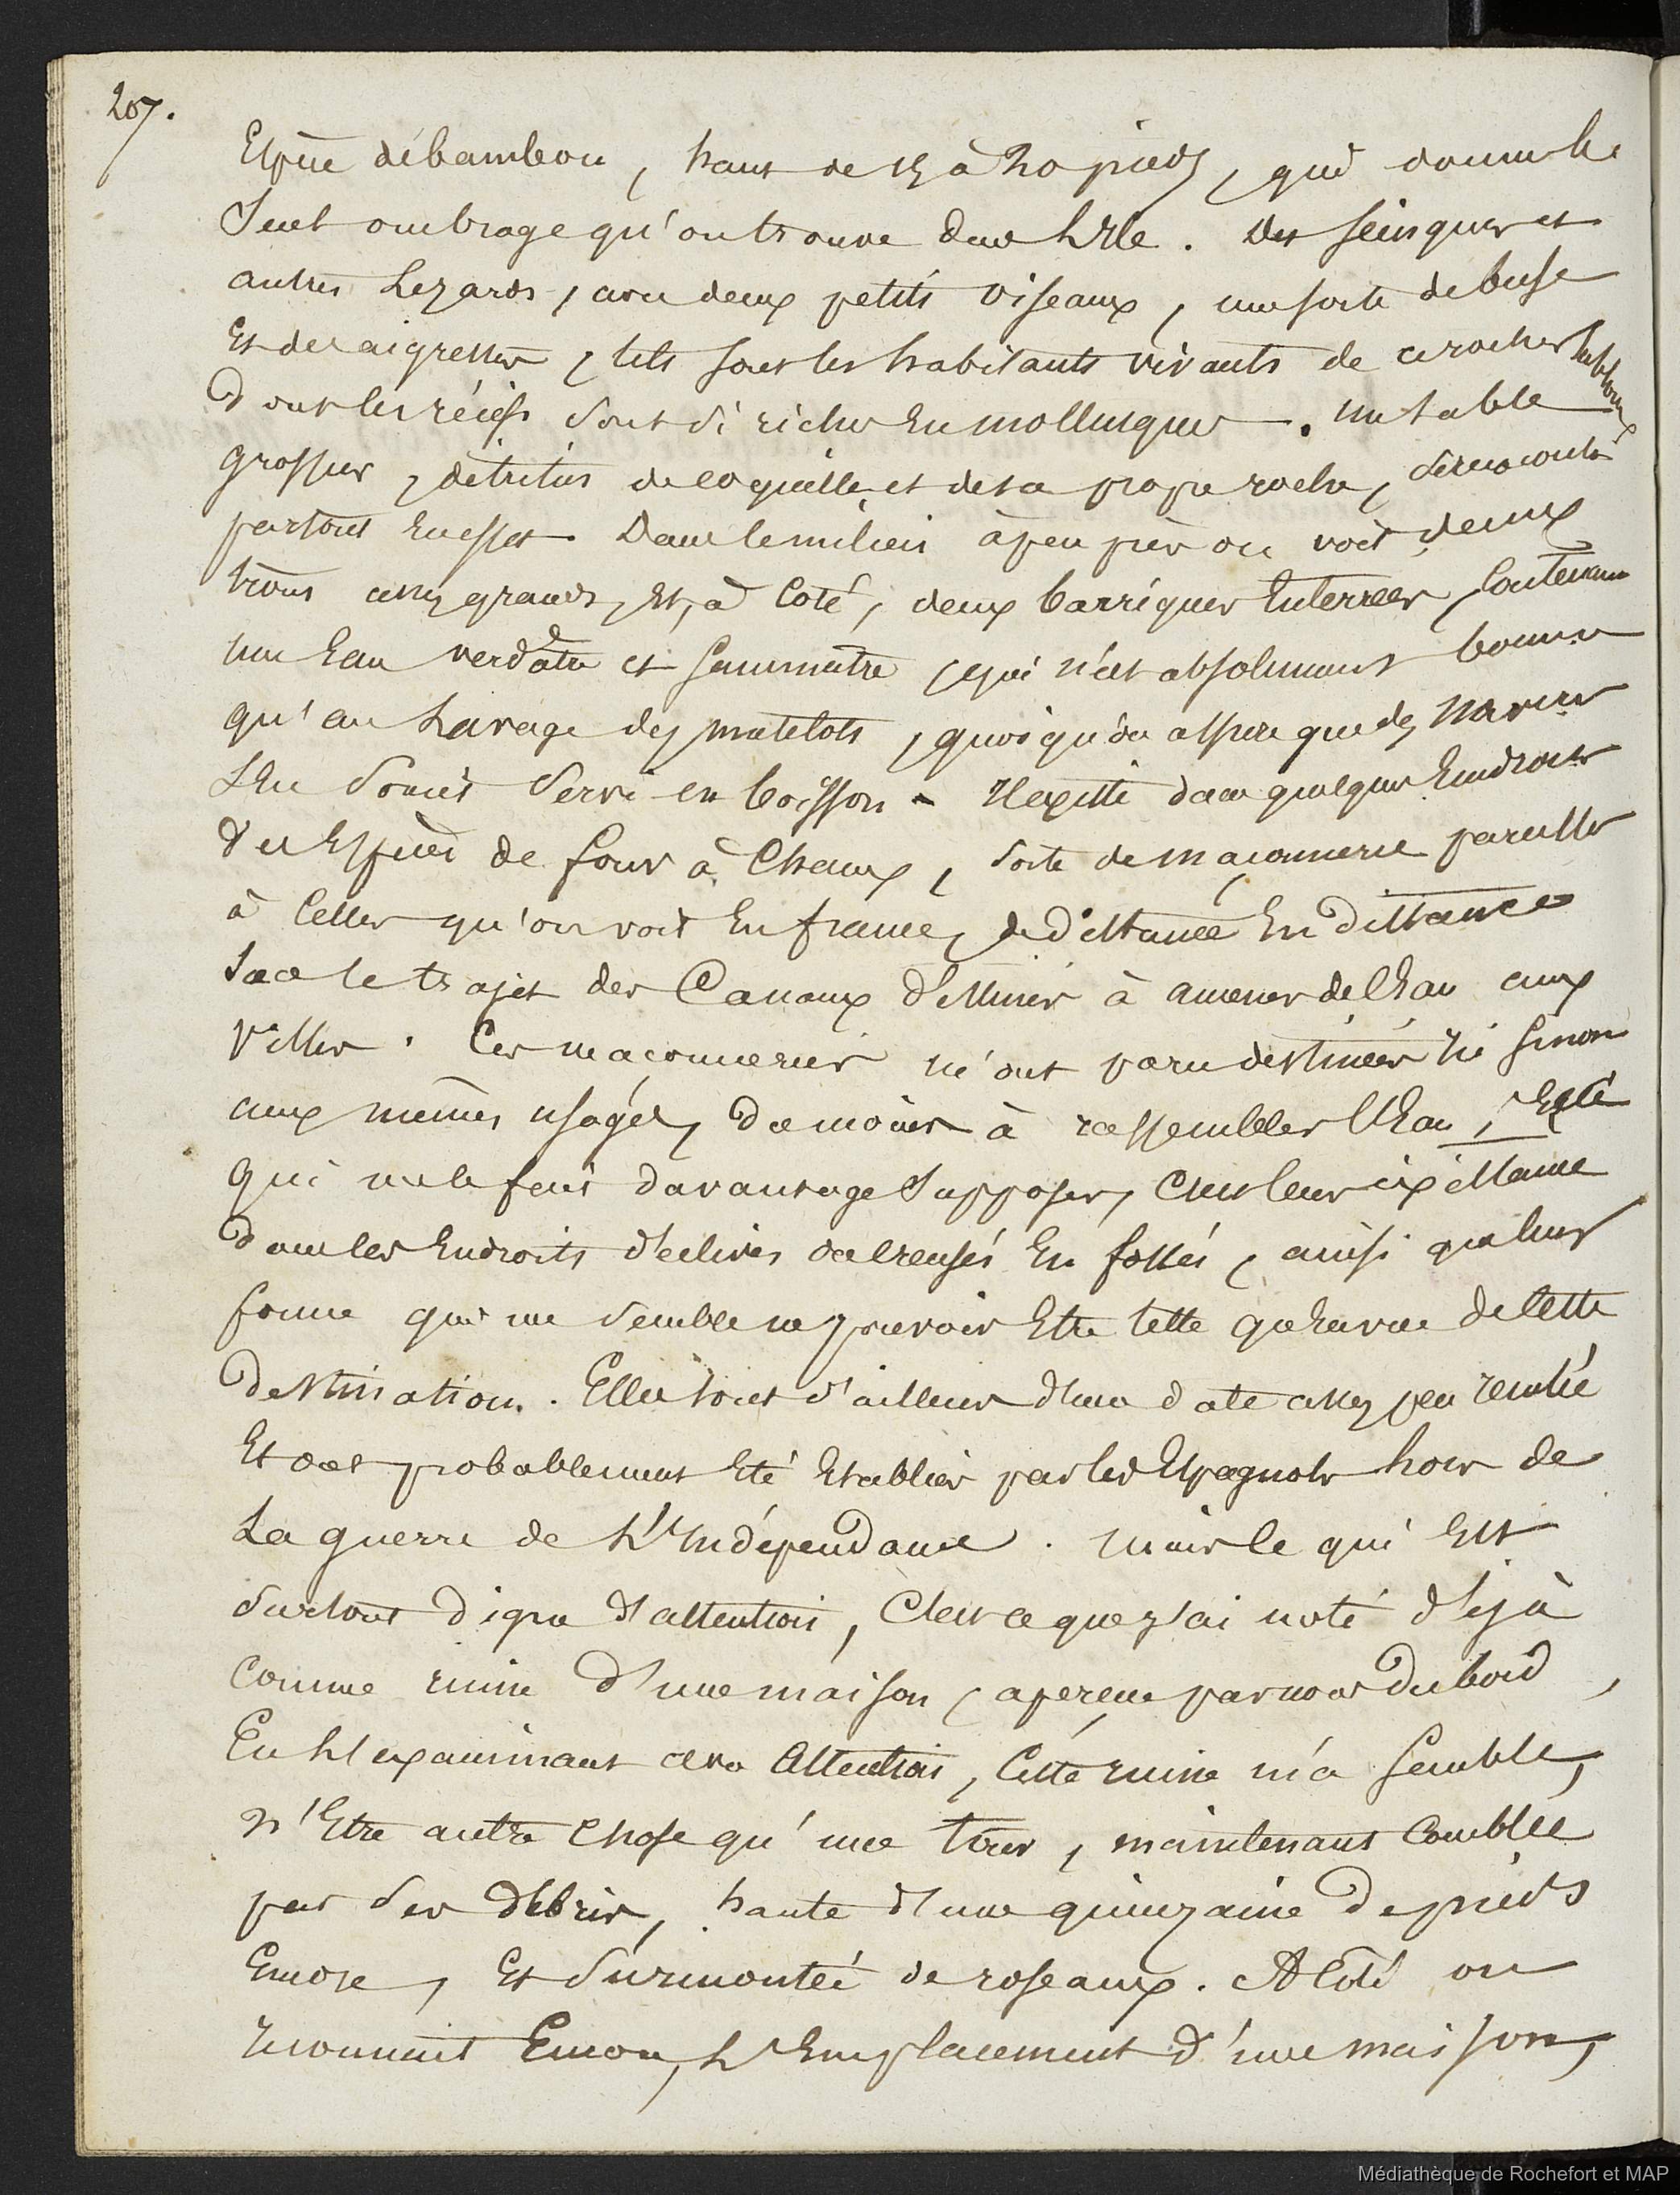 207.
Espèce de bambou, haut de 15 à 20 pieds, qui donne le
Seul ombrage qu'on trouve dans L'Ile. Des Scinques et
autres Lezards, avec deux petits oiseaux, une sorte de buse
Et des aigrettes, tels sont les habitants vivants de ce rocher sablonneux
Dont les récifs sont si riches En mollusques. un sable
grossier, détritus de coquilles et de sa propre roche, se rencontre
partout En effet. Dans le milieu à peu près on voit deux
trous assez grands, Et, à Coté, deux barriques Enterrées, Contenant
une Eau verdâtre et saumâtre, qui n'est absolument bonne
qu'au Lavage des matelots, quoiqu'on assure que des navires
s'En soient servi en boisson. Il existe dans quelques Endroits
des Espèces de four à Chaux, sorte de maçonnerie pareilles
à Celles qu'on voit En france, de Distance En Distance
sur le trajet des Canaux Destinés à amener de l'Eau aux
Villes. Ces maçonneries m'ont paru destinées ici sinon
aux mêmes usages, Du moins à rassembler l'Eau,
qui me le fait Davantage Supposer, C'est leur existance
Dans les Endroits Declives ou creusés En fossés, ainsi que leur
forme qui me semble ne pouvoir Etre telle qu'En vue de Cette
Destination. Elles sont D'ailleurs D'une Date assez peu reculée
Et ont probablement Eté Etablies par les Espagnols Lors de
La guerre de L'Indépendance. mais Ce qui Est
Surtout Digne D'attention, C'est ce que j'ai noté Déjà
Comme ruine D'une maison, aperçue par nous Du bord,
En L'examinant avec Attention, Cette ruine m'a Semblé,
N'Etre autre Chose qu'une tour, maintenant Comblée
par Ses Debris, haute D'une quinzaine De pieds
Encore, Et Surmontée de roseaux. A Coté on
reconnait Encore, L'Emplacement D'une maison,
Médiathèque de Rochefort et MAP